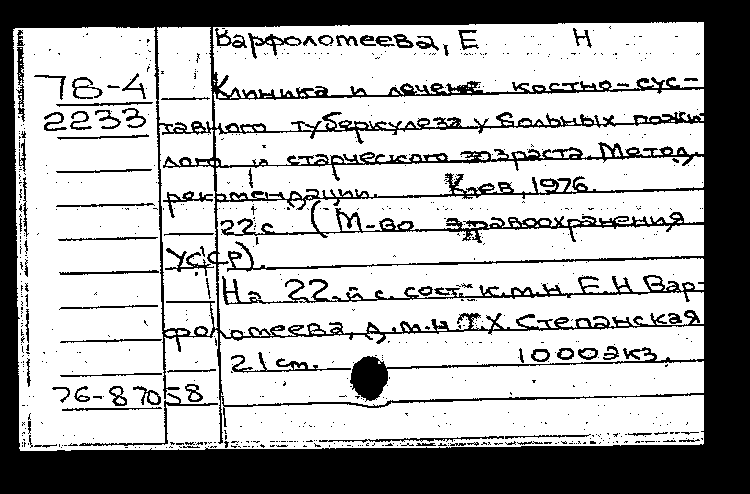 Варфоломеева, Е Н
78-4 Клиника и лечение костно-сус-
2233 тавного туберкулеза у больных пожи-
лого и старческого возраста. Метод.
рекомендации. Киев, 1976.
22 с (М-во здравоохранения
УССР).
На 22-й с. сост. к.м.н. Е.Н Вар-
фоломеева, д.м.н Т.Х. Степанская
21 ст. 1000 экз.
76-87058